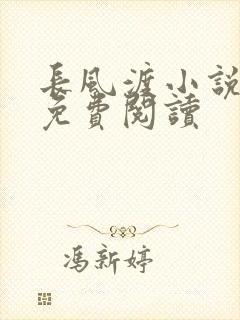 長風渡小說
免費閱讀
馮新婷